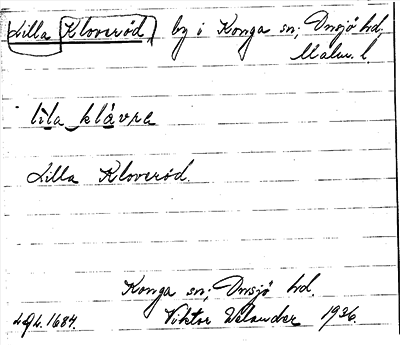 Lilla Kloveröd by i Konga sn; Onsjö hd.
Malm. l
lila klåvre
Lilla Kloveröd
Konga sn; Onsjö hd.
Viktor Welander 1936.